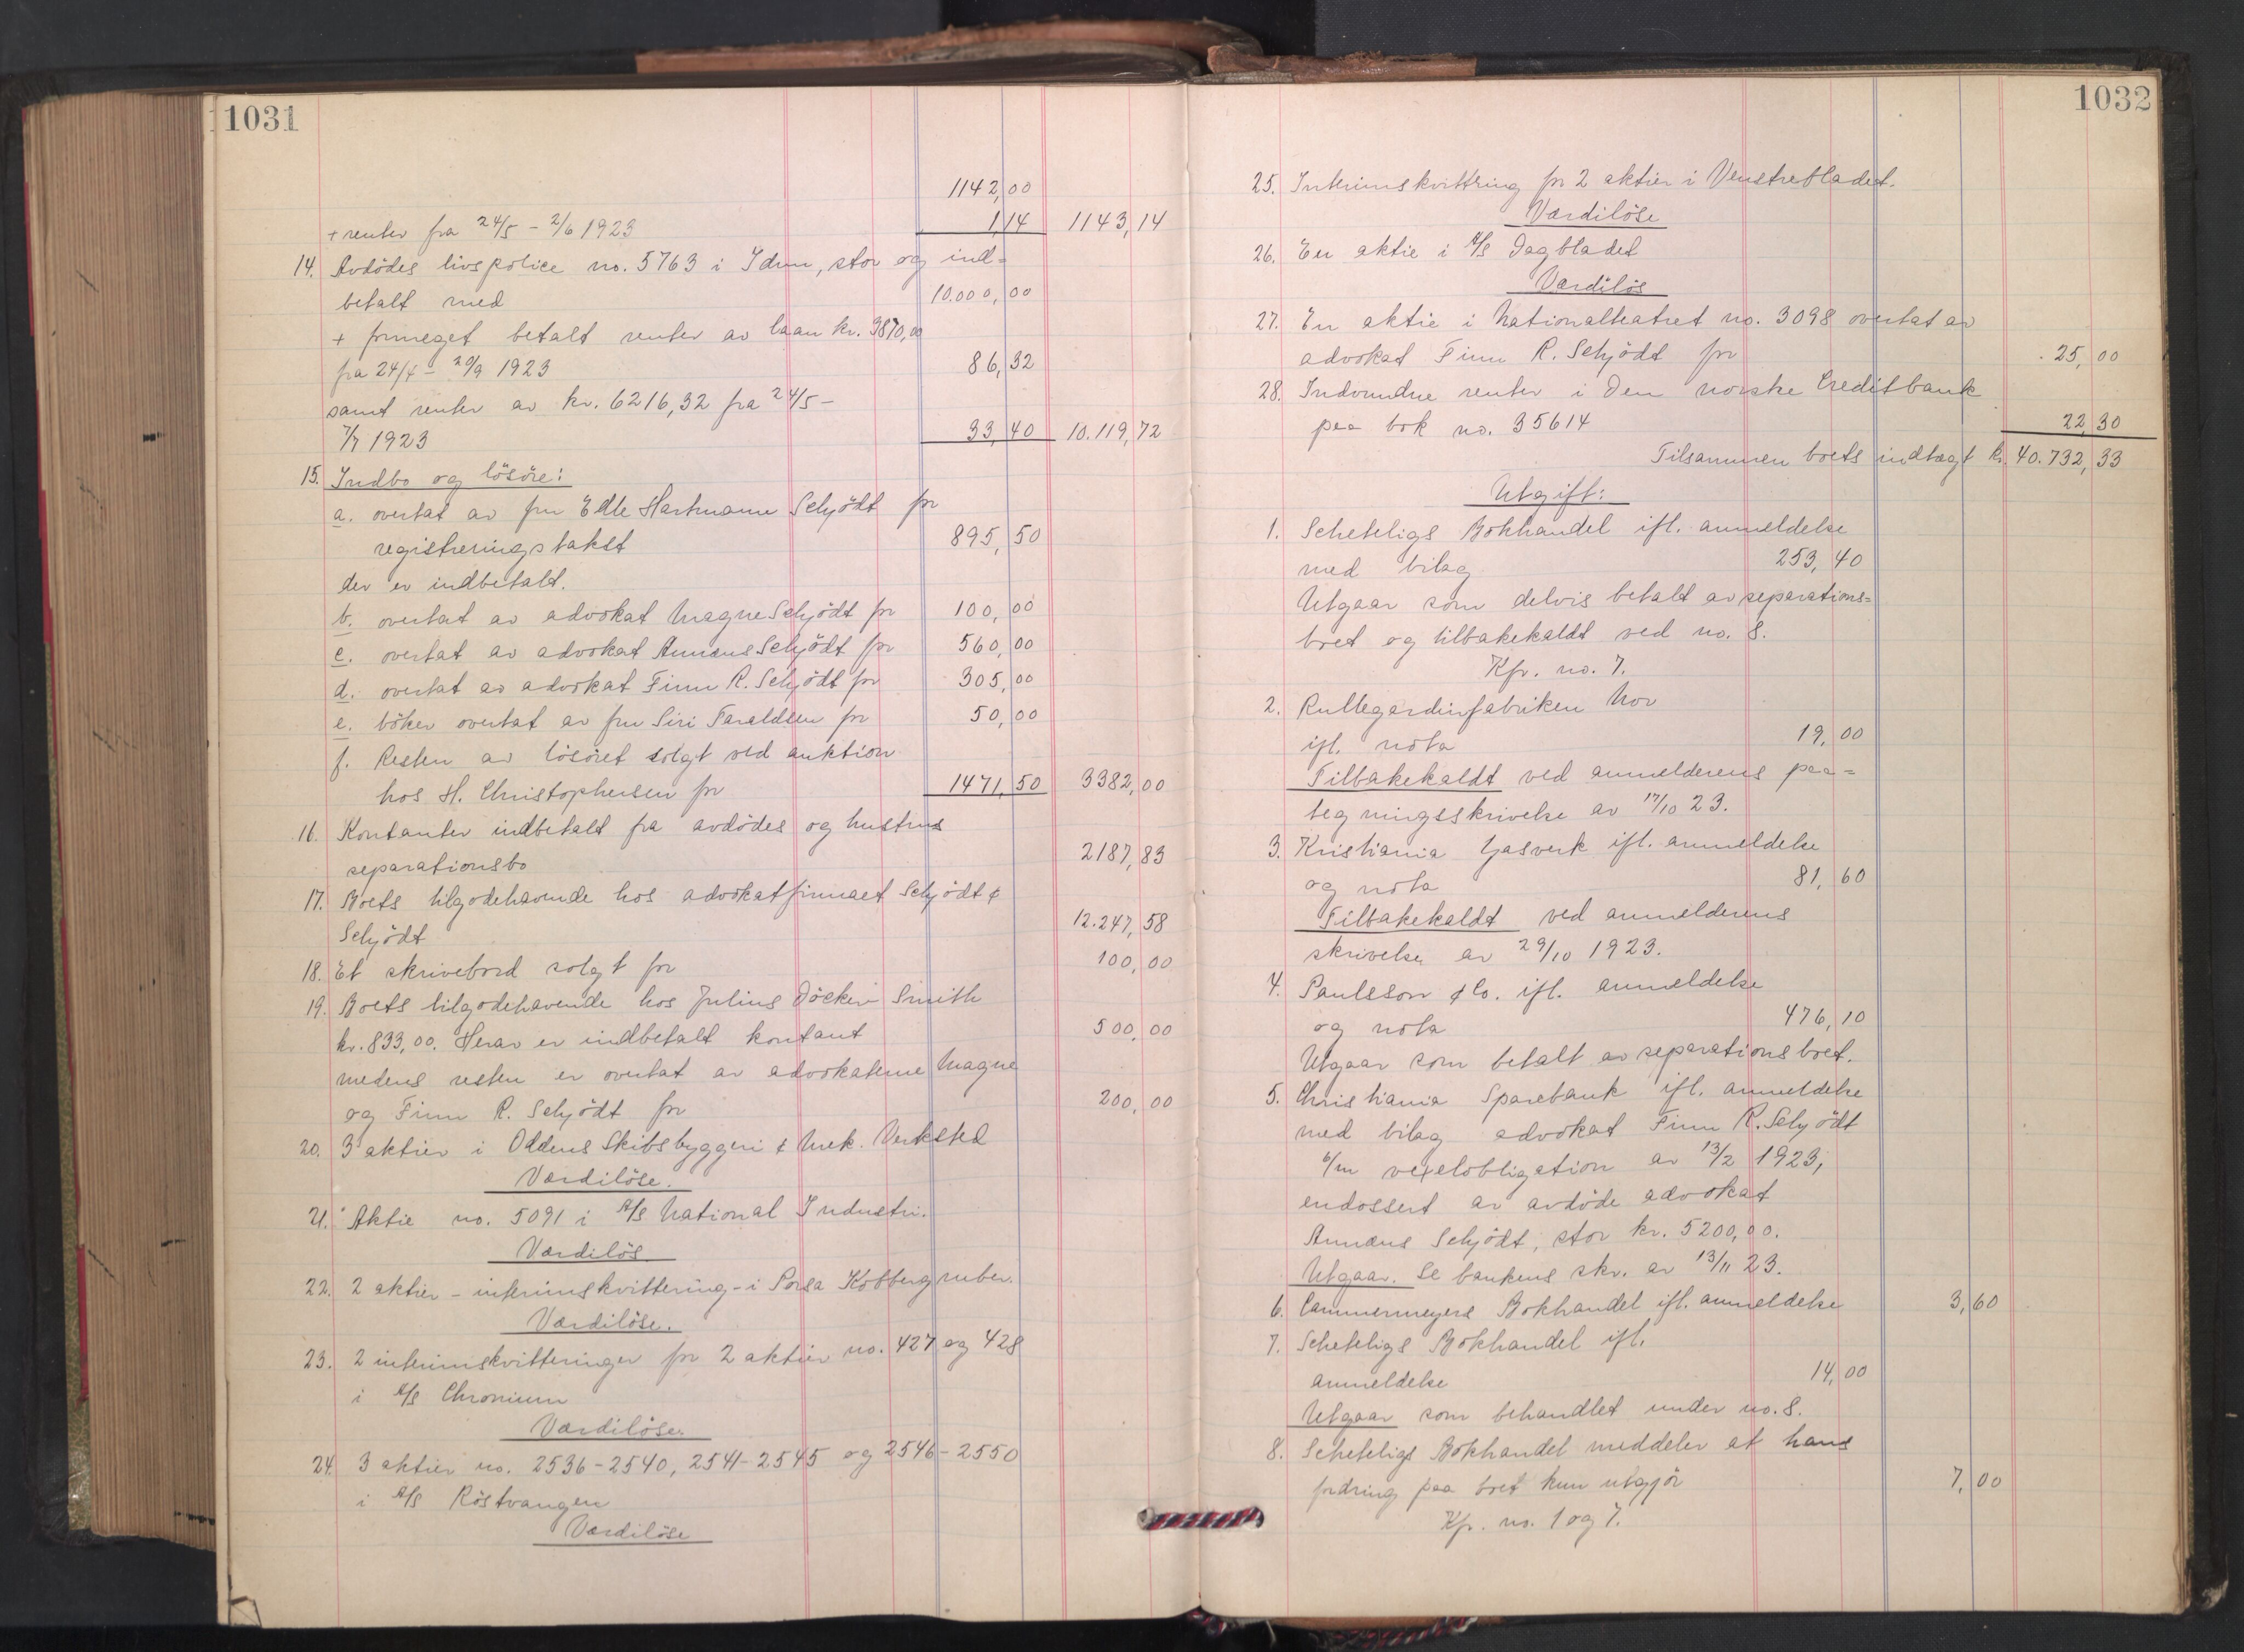 1031
1142,00
+ renter fra 24/5 - 2/6 1923 1,14 1143,14
14. Avdödes livspolice no. 5763 i Idun, stor og ind=
betalt med 10.000,00
+ formeget betalt renter av laan kr. 3870,00
fra 24/4 - 20/9 1923 86,32
samt renter av kr. 6216,32 fra 24/5 -
7/7 1923 33,40 10.119,72
15. Indbo og lösöre:
a. overtat av fru Edle Hartmann Schjödt for
registreringstakst 895,50
der er indbetalt.
b. overtat av advokat Magne Schjödt for 100,00
c. overtat av advokat Annæus Schjödt for 560,00
d. overtat av advokat Finn R. Schjödt for 305,00
e. böker overtat av fru Siri Taraldsen for 50,00
f. Resten av lösöret solgt ved auktion
hos H. Christophersen for 1471,50 3382,00
16. Kontanter indbetalt fra avdödes og hustrus
separationsbo 2187,83
17. Boets tilgodehavende hos advokatfirmaet Schjödt &
Schjödt 12.247,58
18. Et skrivebord solgt for 100,00
19. Boets tilgodehavende hos Julius Döcker Smith
kr. 833,00. Herav er indbetalt kontant 500,00
medens resten er overtat av advokaterne Magne
og Finn R. Schjödt for 200,00
20. 3 aktier i Oddens Skibsbyggeri & Mek. Verksted
Værdilöse.
21. Aktie no. 5091 i A/S National Industri.
Værdilös
22. 2 aktier - interimskvittering - i Porsa Kobbergruber.
Værdilöse.
23. 2 interimskvitteringer for 2 aktier no. 427 og 428
i A/S Chronium
Værdilöse.
24. 3 aktier no. 2536-2540, 2541-2545 og 2546-2550
i A/S Röstvangen
Værdilöse
1032
25. Interimskvittring for 2 aktier i Venstrebladet.
Værdilöse
26. En aktie i A/S Dagbladet
Værdilös
27. En aktie i Nationalteatret no. 3098 overtat av
advokat Finn R. Schjödt for 25,00
28. Indvundne renter i Den norske Creditbank
paa bok no. 35614 22,30
Tilsammen boets indtægt kr. 40.732,33
Utgift:
1. Scheteligs Bokhandel ifl. anmeldelse
med bilag 253,40
Utgaar som delvis betalt av separations=
boet og tilbakekaldt ved no. 8.
Kfr. no. 7.
2. Rullegardinfabriken Nor
ifl. nota 19,00
Tilbakekaldt ved anmelderens paa=
tegningsskrivelse av 17/10 23.
3. Kristiania Gasverk ifl. anmeldelse
og nota 81,60
Tilbakekaldt ved anmelderens
skrivelse av 29/10 1923.
4. Paulsson & Co. ifl. anmeldelse
og nota 476,10
Utgaar som betalt av separationsboet.
5. Christiania Sparebank ifl. anmeldelse
med bilag advokat Finn R. Schjödt
6/m vexelobligation av 13/2 1923,
endossert av avdöde advokat
Annæus Schjödt, stor kr. 5200,00.
Utgaar. Se bankens skr. av 13/11 23.
6. Cammermeyers Bokhandel ifl. anmeldelse 3,60
7. Scheteligs Bokhandel ifl.
anmeldelse 14,00
Utgaar som behandlet under no. 8.
8. Scheteligs Bokhandel meddeler at hans
fordring paa boet kun utgjör 7,00
Kfr. no. 1 og 7.